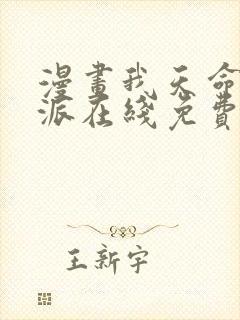 漫畫我天命
派在綫免費
王新宇